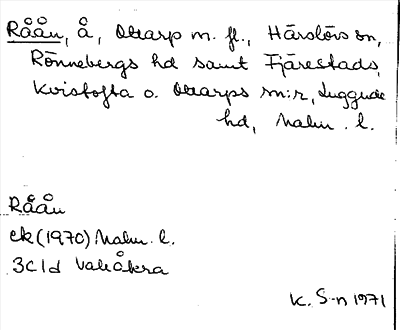 Råån, å, Ottarp m. fl., Härslövs sn,
Rönnebergs hd samt Fjärestads,
Kvistofta o. Ottarps sn:r, Luggude
hd, Malm. l.
Råån
ek (1970) Malm. l.
3C1d Vallåkra
K. S-n 1971